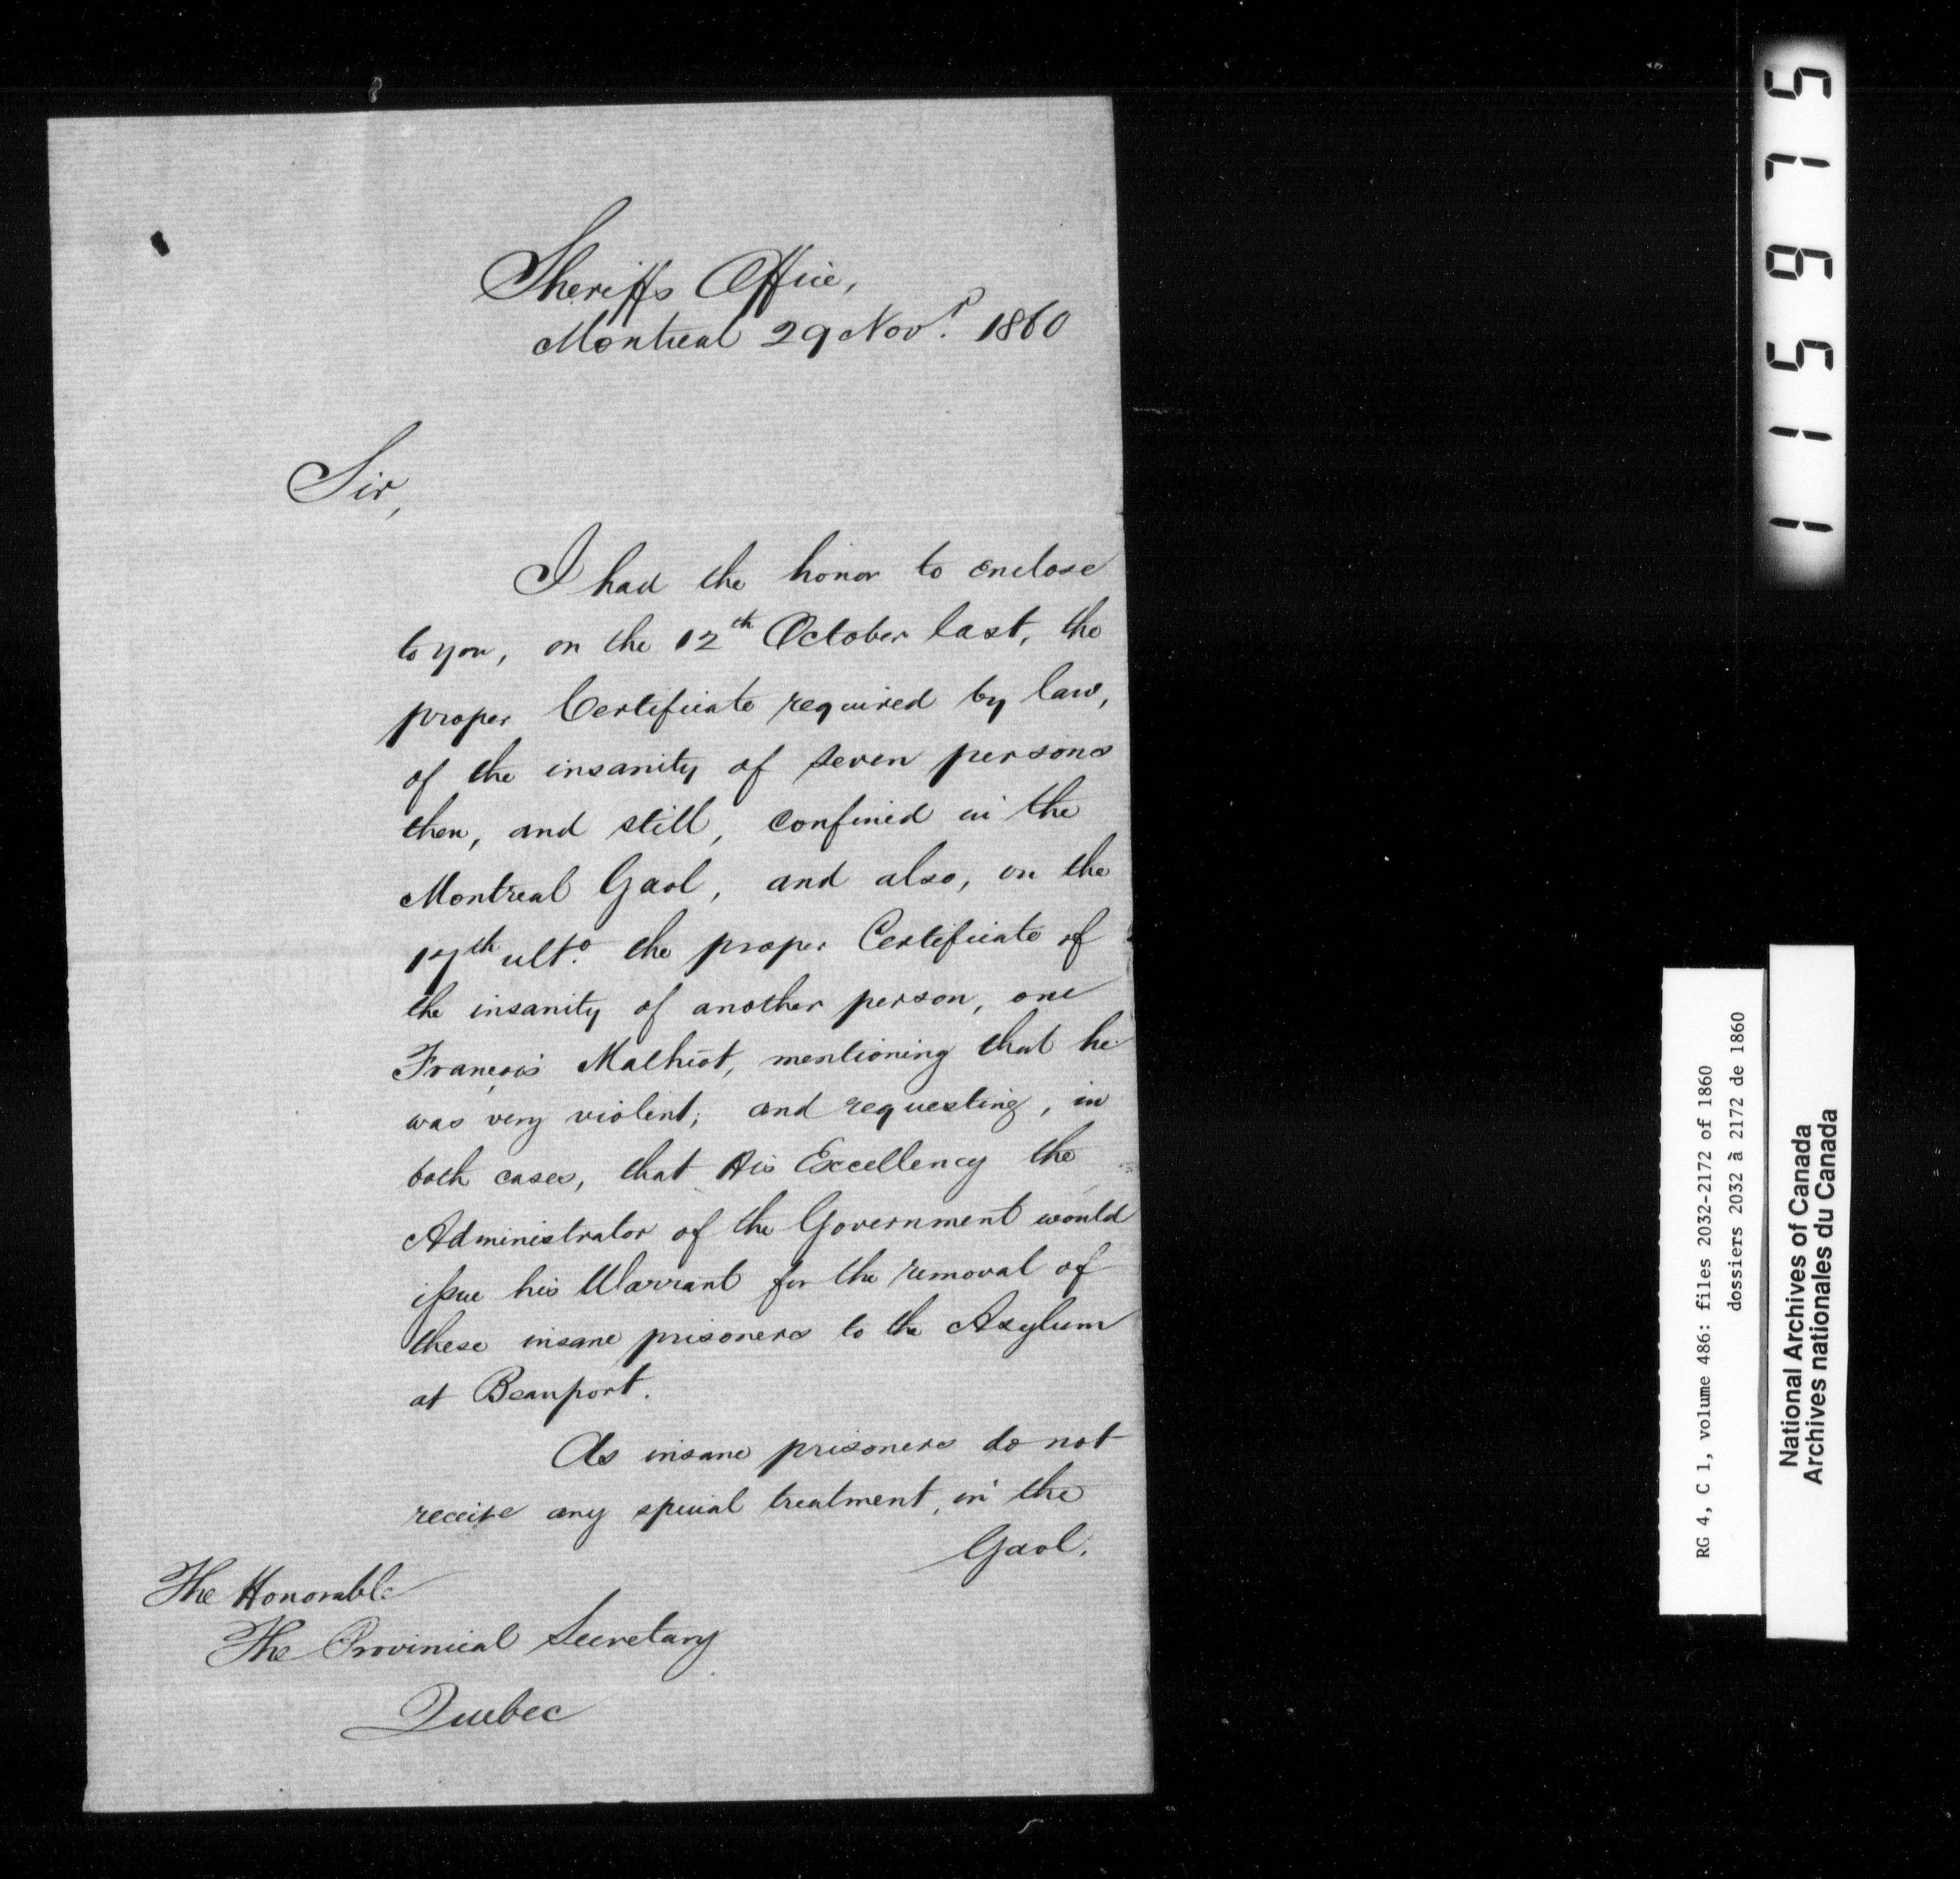 Sheriffs Office,
Montreal 29 Nov.r 1860
Sir,
I had the honor to enclose
to you, on the 12th October last, the
proper Certificate required by law,
of the insanity of seven persons
then, and still, confined in the
Montreal Gaol, and also, on the
17th ulto. the proper Certificate of
the insanity of another person, one
François Malhiot, mentioning that he
was very violent; and requesting, in
both cases, that His Excellency the
Administrator of the Government would
issue his Warrant for the removal of
these insane prisoners to the Asylum
at Beauport.
As insane prisoners do not
receive any special treatment, in the
Gaol,
The Honorable
The Provincial Secretary
Quebec
115975
RG 4, C 1, volume 486: files 2032-2172 of 1860
dossiers 2032 à 2172 de 1860
National Archives of Canada
Archives nationales du Canada